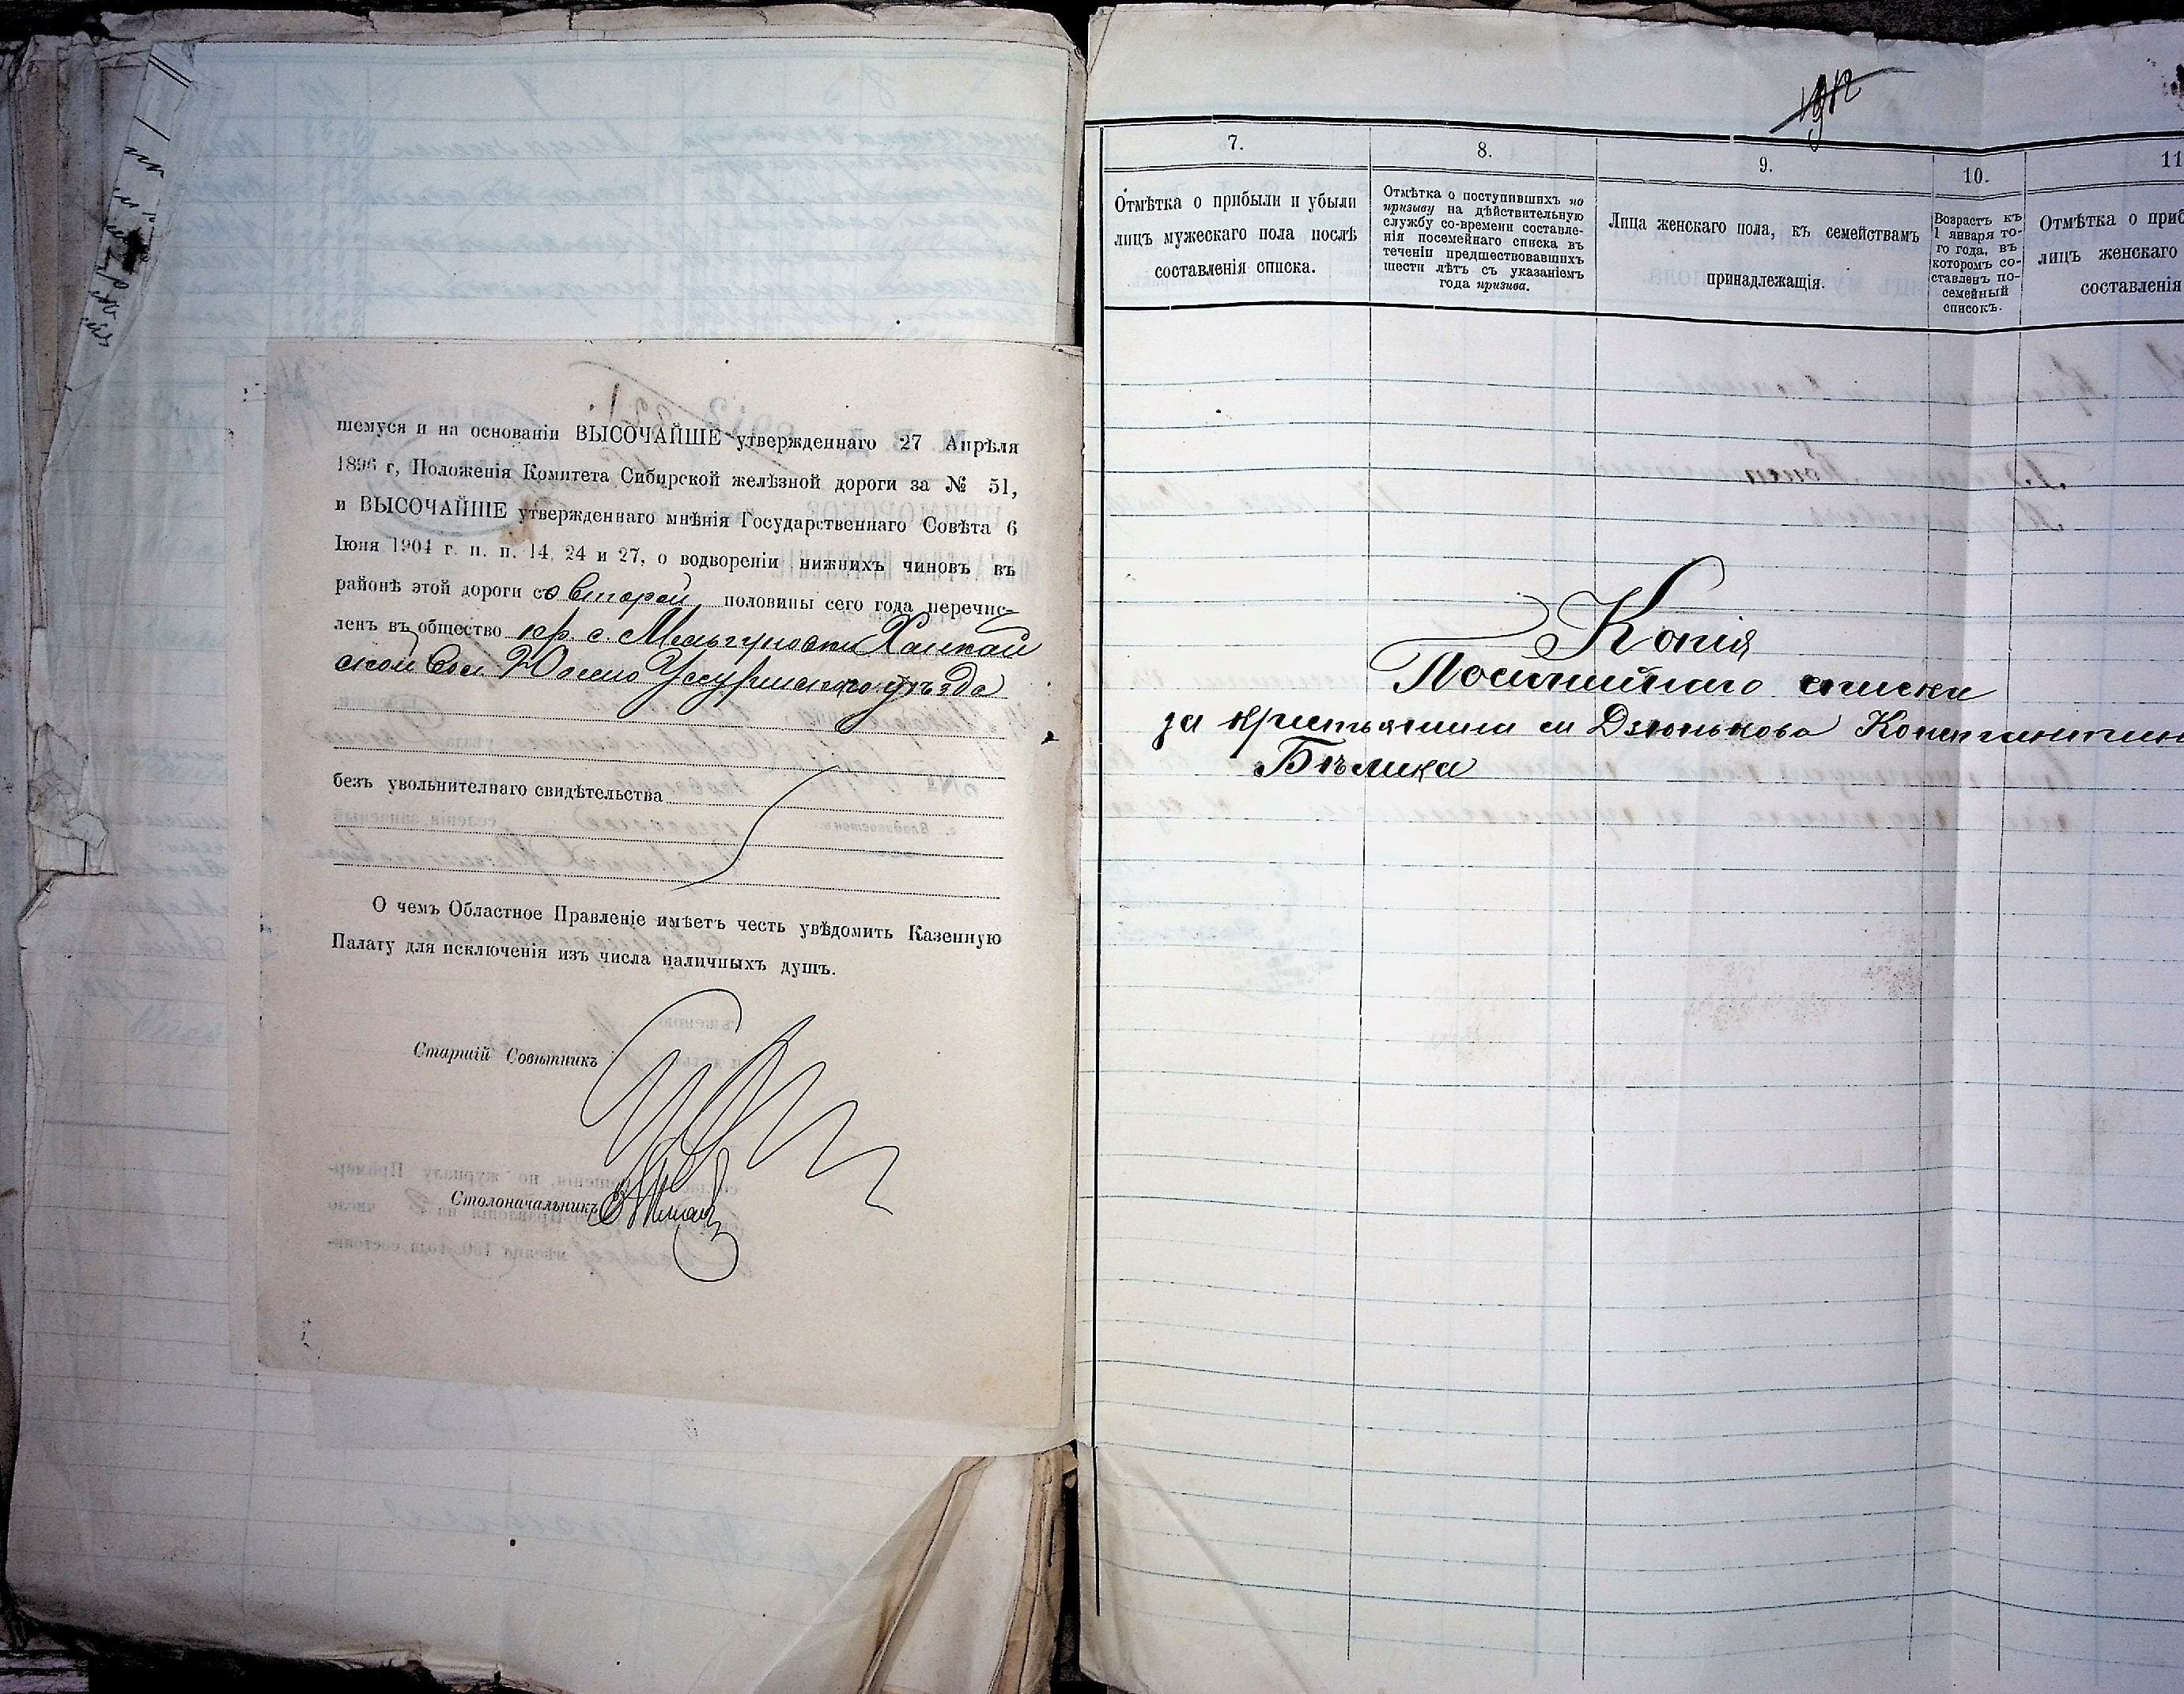 шемуся и на основаніи ВЫСОЧАЙШЕ утвержденнаго 27 Апрѣля
1896 г, Положенія Комитета Сибирской желѣзной дороги за № 51,
и ВЫСОЧАЙШЕ утвержденнаго мнѣнія Государственнаго Совѣта 6
Іюня 1904 г. п. п. 14, 24 и 27, о водвореніи нижнихъ чиновъ въ
районѣ этой дороги со второй половины сего года перечис-
ленъ въ общество кр. с. Мельгуновки Ханкай
ской вол. Южно Уссурійскаго уѣзда
безъ увольнителнаго свидѣтельства
О чемъ Областное Правленіе имѣетъ честь увѣдомить Казенную
Палату для исключенія изъ числа наличныхъ душъ.
Старшій Совѣтникъ
Столоначальникъ
1912
7.
Отмѣтка о прибыли и убыли
лицъ мужескаго пола послѣ
составленія списка.
8.
Отмѣтка о поступившихъ по
призыву на дѣйствительную
службу со-времени составле-
нія посемейнаго списка въ
теченіи предшествовавшихъ
шести лѣтъ съ указаніемъ
года призыва.
9.
Лица женскаго пола, къ семействамъ
принадлежащія.
10.
Возрастъ къ
1 января то-
го года, въ
которомъ со-
ставленъ по-
семейный
списокъ.
11
Отмѣтка о приб
лицъ женскаго
составленія
Копія
Посемейнаго списка
за крестьянина см Дзюнькова Константин
Бѣлика